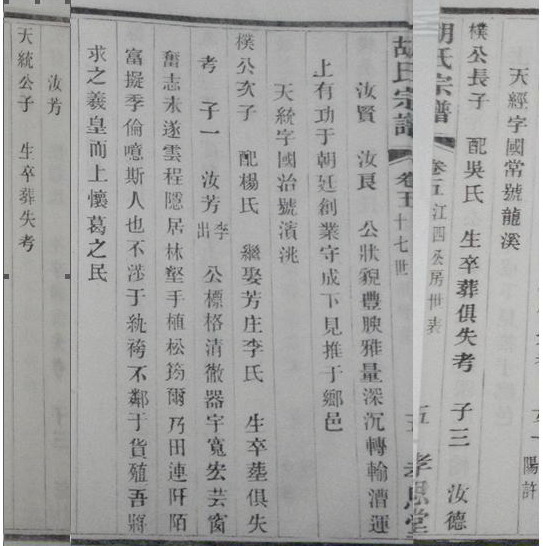 陽許
天經字國常號龍溪
樸公長子 配吳氏 生卒葬俱失考 子三 汝德
胡氏宗譜 卷五 江四公房世表
胡氏宗譜 卷五 十七世 五 孝思堂
汝賢 汝良 公狀貌豐腴雅量深沉轉輸漕運
上有功于朝廷創業守成下見推于鄉邑
天統字國治號濱洮
樸公次子 配楊氏 繼娶芳庄李氏 生卒塟俱失
考 子一 汝芳李出 公標格清徹器宇寬宏芸窗
奮志未遂雲程隱居林壑手植松筠爾乃田連阡陌
富擬季倫噫斯人也不涉于紈袴不鄰于貨殖吾將
求之羲皇而上懷葛之民
汝芳
天統公子 生卒葬失考